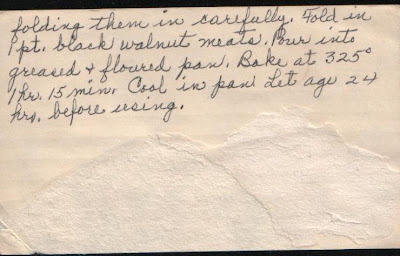 folding them in carefully. Fold in
1 pt. black walnut meats. Pour into
greased & floured pan. Bake at 325°
1 hr. 15 min. Cool in pan. Let age 24
hrs. before using.